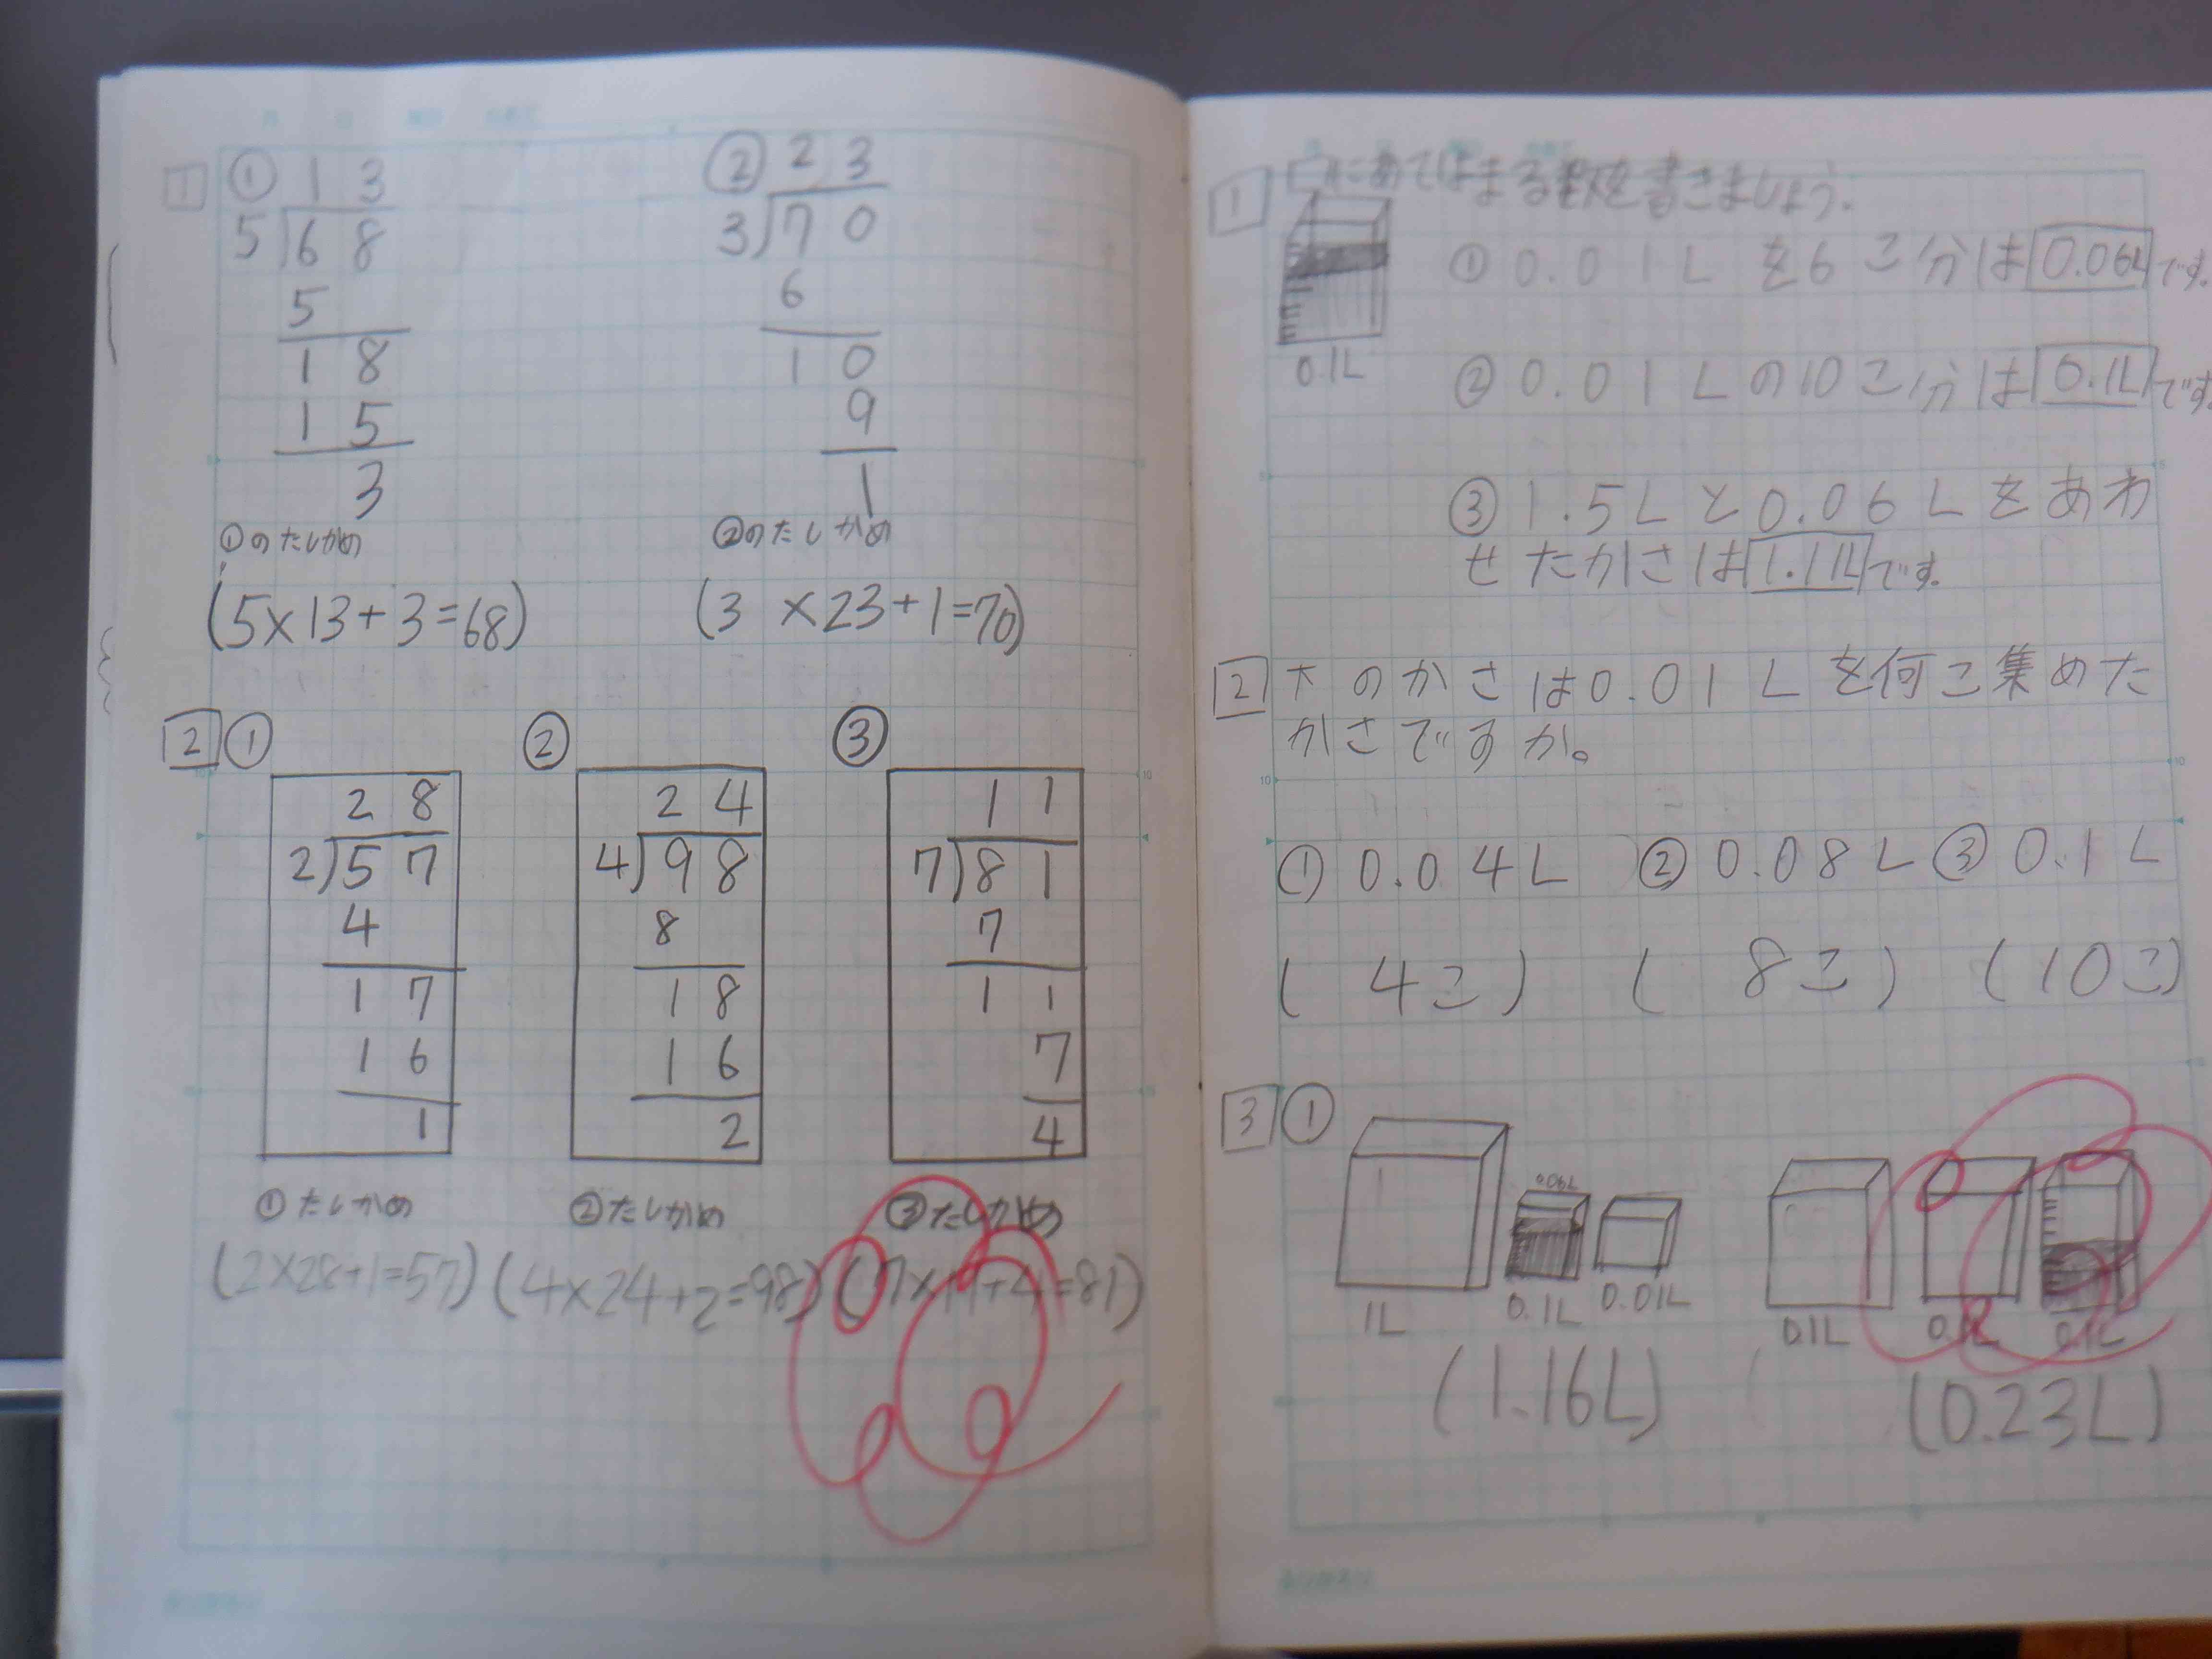 1 ① 13
5)68
5
18
15
3
①のたしかめ
(5×13+3=68)
② 23
3)70
6
10
9
1
②のたしかめ
(3×23+1=70)
2 ①
28
2)57
4
17
16
1
①たしかめ
(2×28+1=57)
②
24
4)98
8
18
16
2
②たしかめ
(4×24+2=98)
③
11
7)81
7
11
7
4
③たしかめ
(7×11+4=81)
1 □にあてはまる数を書きましょう。
0.1L
①0.01Lを6こ分は0.06Lです。
②0.01Lの10こ分は0.1Lです。
③1.5Lと0.06Lをあわ
せたかさは1.11Lです。
2 下のかさは0.01Lを何こ集めた
かさですか。
①0.04L ②0.08L ③0.1L
(4こ) (8こ) (10こ)
3 ①
0.06L
1L 0.1L 0.01L
(1.16L)
0.1L 0.1L 0.1L
(0.23L)